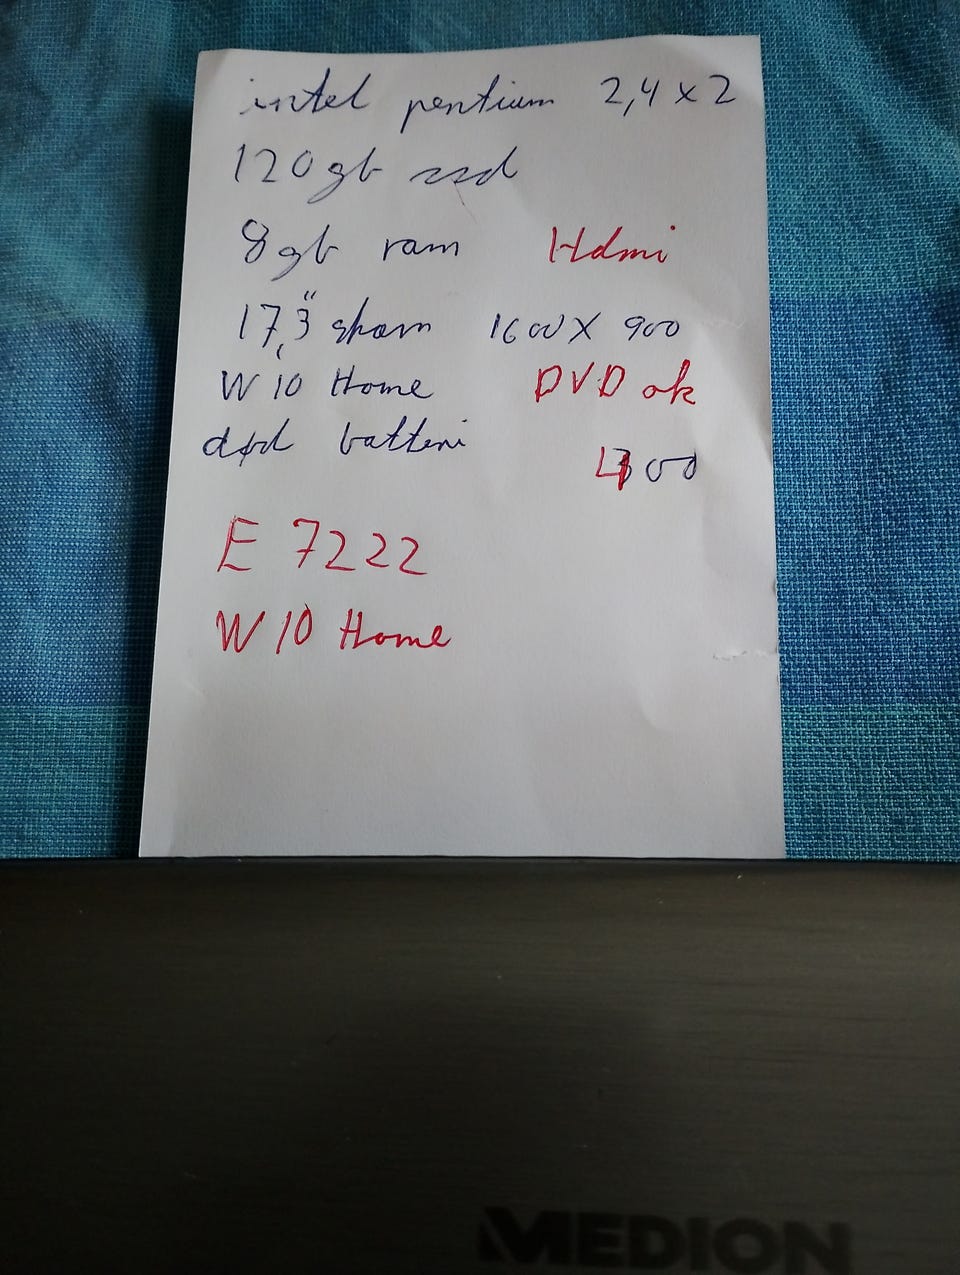 intel pentium 2,4 x 2
120 gb ssd
8 gb ram Hdmi
17,3" skærm 1600 X 900
W 10 Home DVD ok
død batteri
400
E 7222
W 10 Home
MEDION